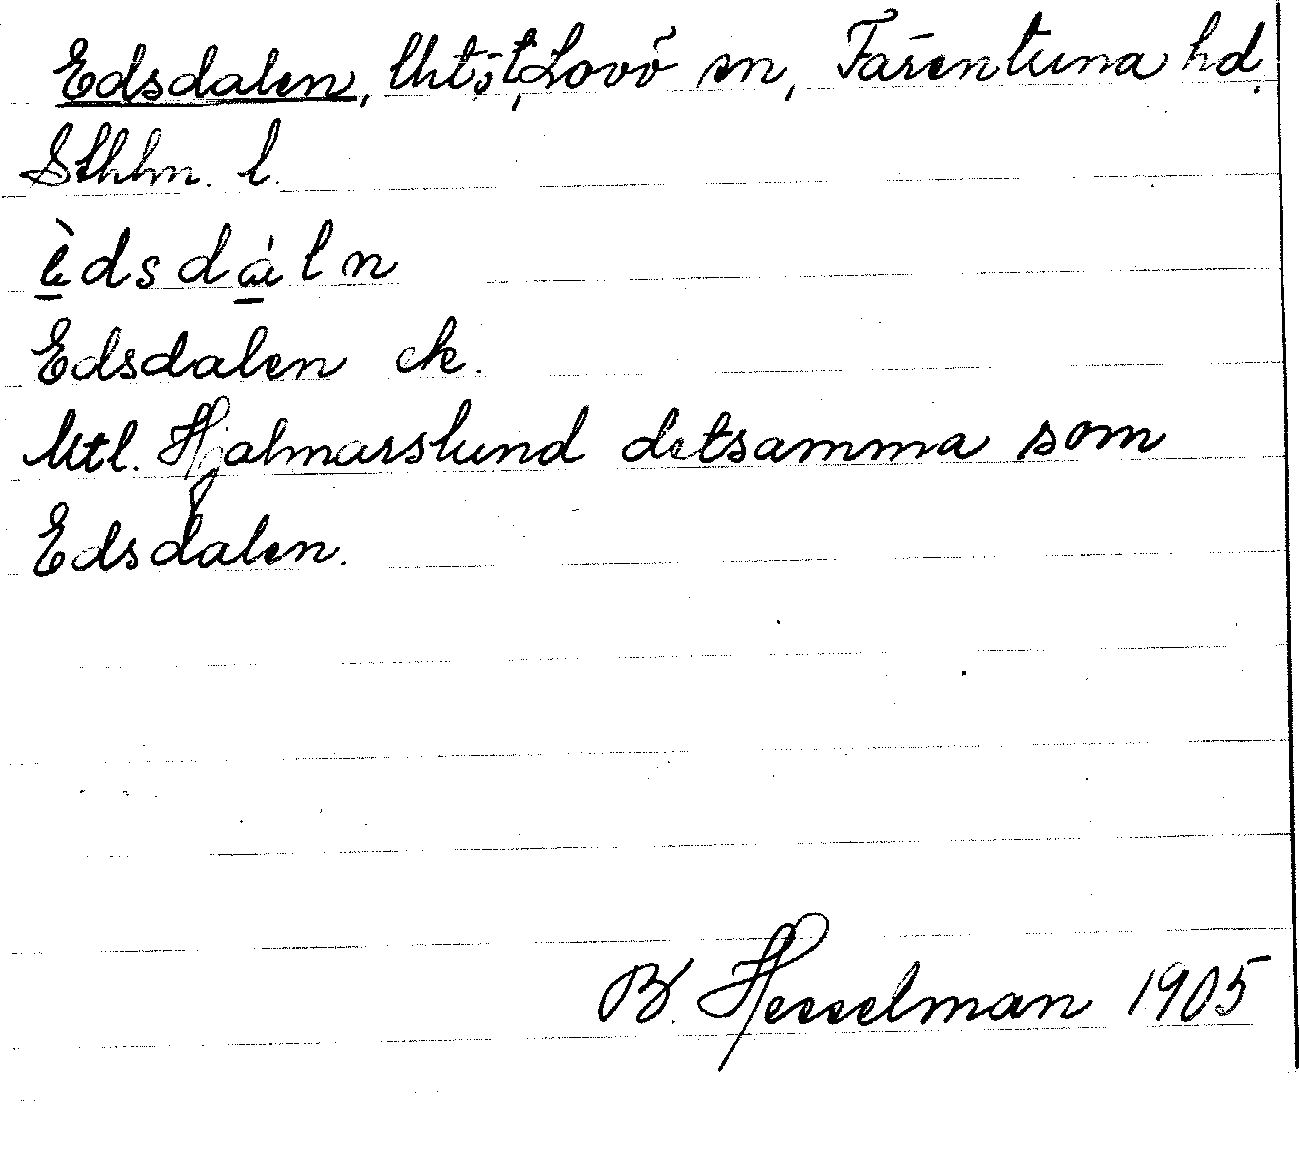 Edsdalen, lht, t, Lovö sn, Färentuna hd.
Sthlm. l.
è̱dsdá̱ln
Edsdalen ek.
Mtl. Hjalmarslund detsamma som
Edsdalen.
B. Hesselman 1905